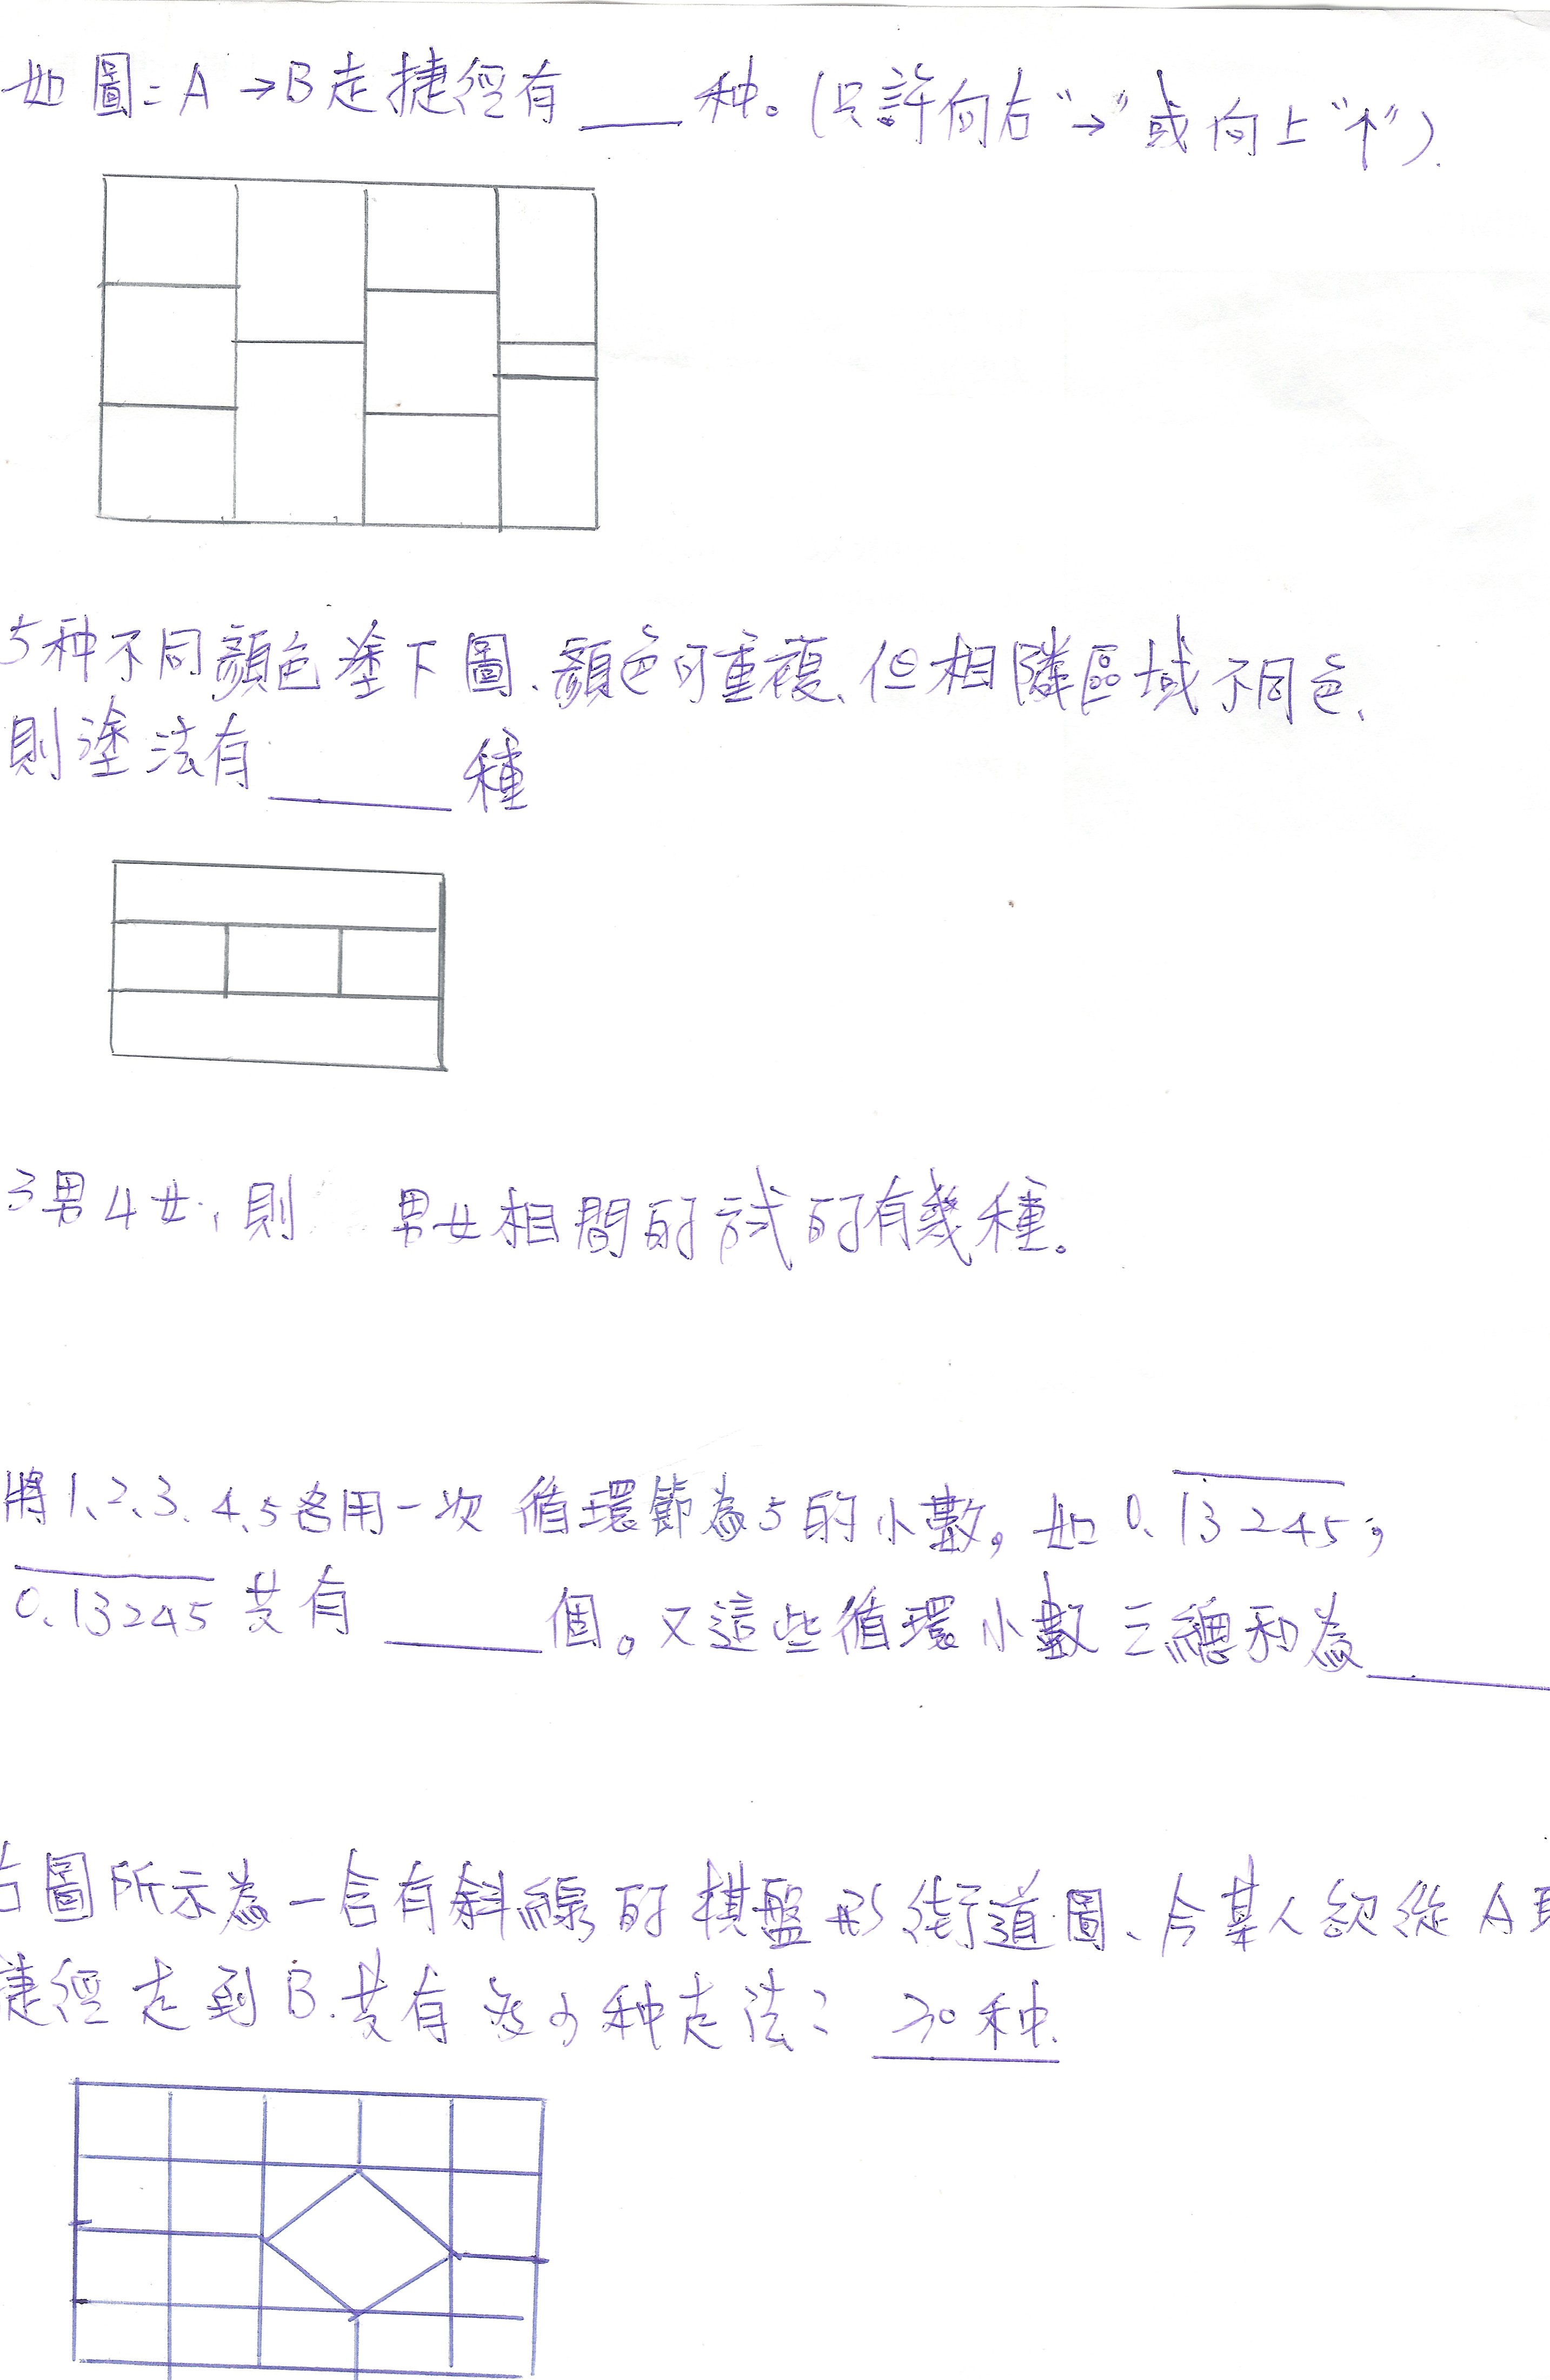 如圖:A→B走捷徑有___种。(只許向右"→"或向上"↑").
5种不同顏色塗下圖.顏色可重複、但相隣區域不同色、
則塗法有_____種
3男4女、則 男女相間的方式的有幾種。
將1、2、3、4、5各用一次 循環節為5的小數,如0.13245;
0.13245共有_____個。又這些循環小數之總和為_____
右圖所示為一含有斜線的棋盤形街道圖、今某人欲從A取
捷徑走到B.共有多少种走法? 30种.